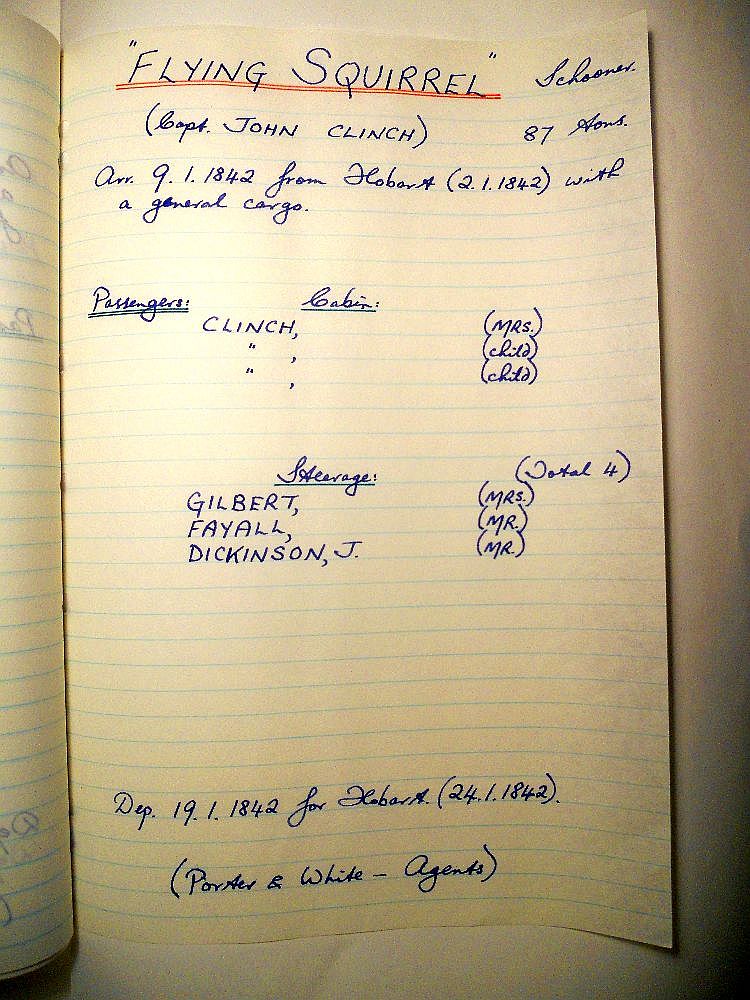 "FLYING SQUIRREL" Schooner.
(Capt. JOHN CLINCH) 87 tons.
Arr. 9.1.1842 from Hobart (2.1.1842) with
a general cargo.
Passengers: Cabin:
CLINCH, (MRS.)
" , (child)
" , (child)
Steerage: (Total 4)
GILBERT, (MRS.)
FAYALL, (MR.)
DICKINSON, J. (MR.)
Dep. 19.1.1842 for Hobart. (24.1.1842).
(Porter & White - Agents)